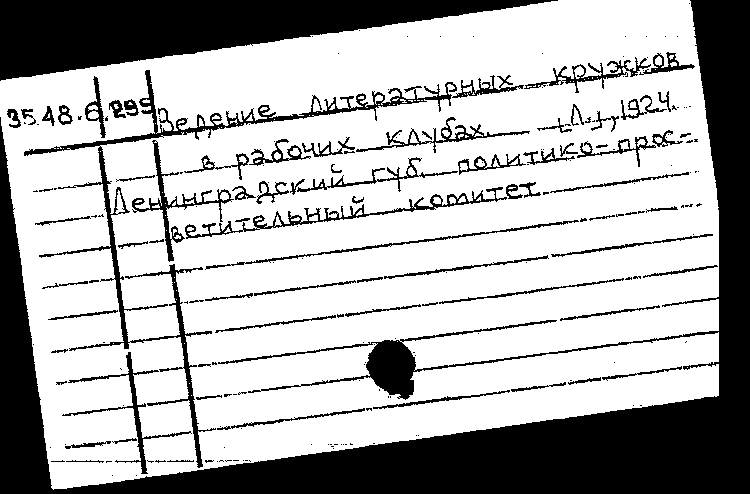 35.48.6.299 Ведение литературных кружков
в рабочих клубах. [Л.], 1924.
Ленинградский губ. политико-прос-
ветительный комитет.